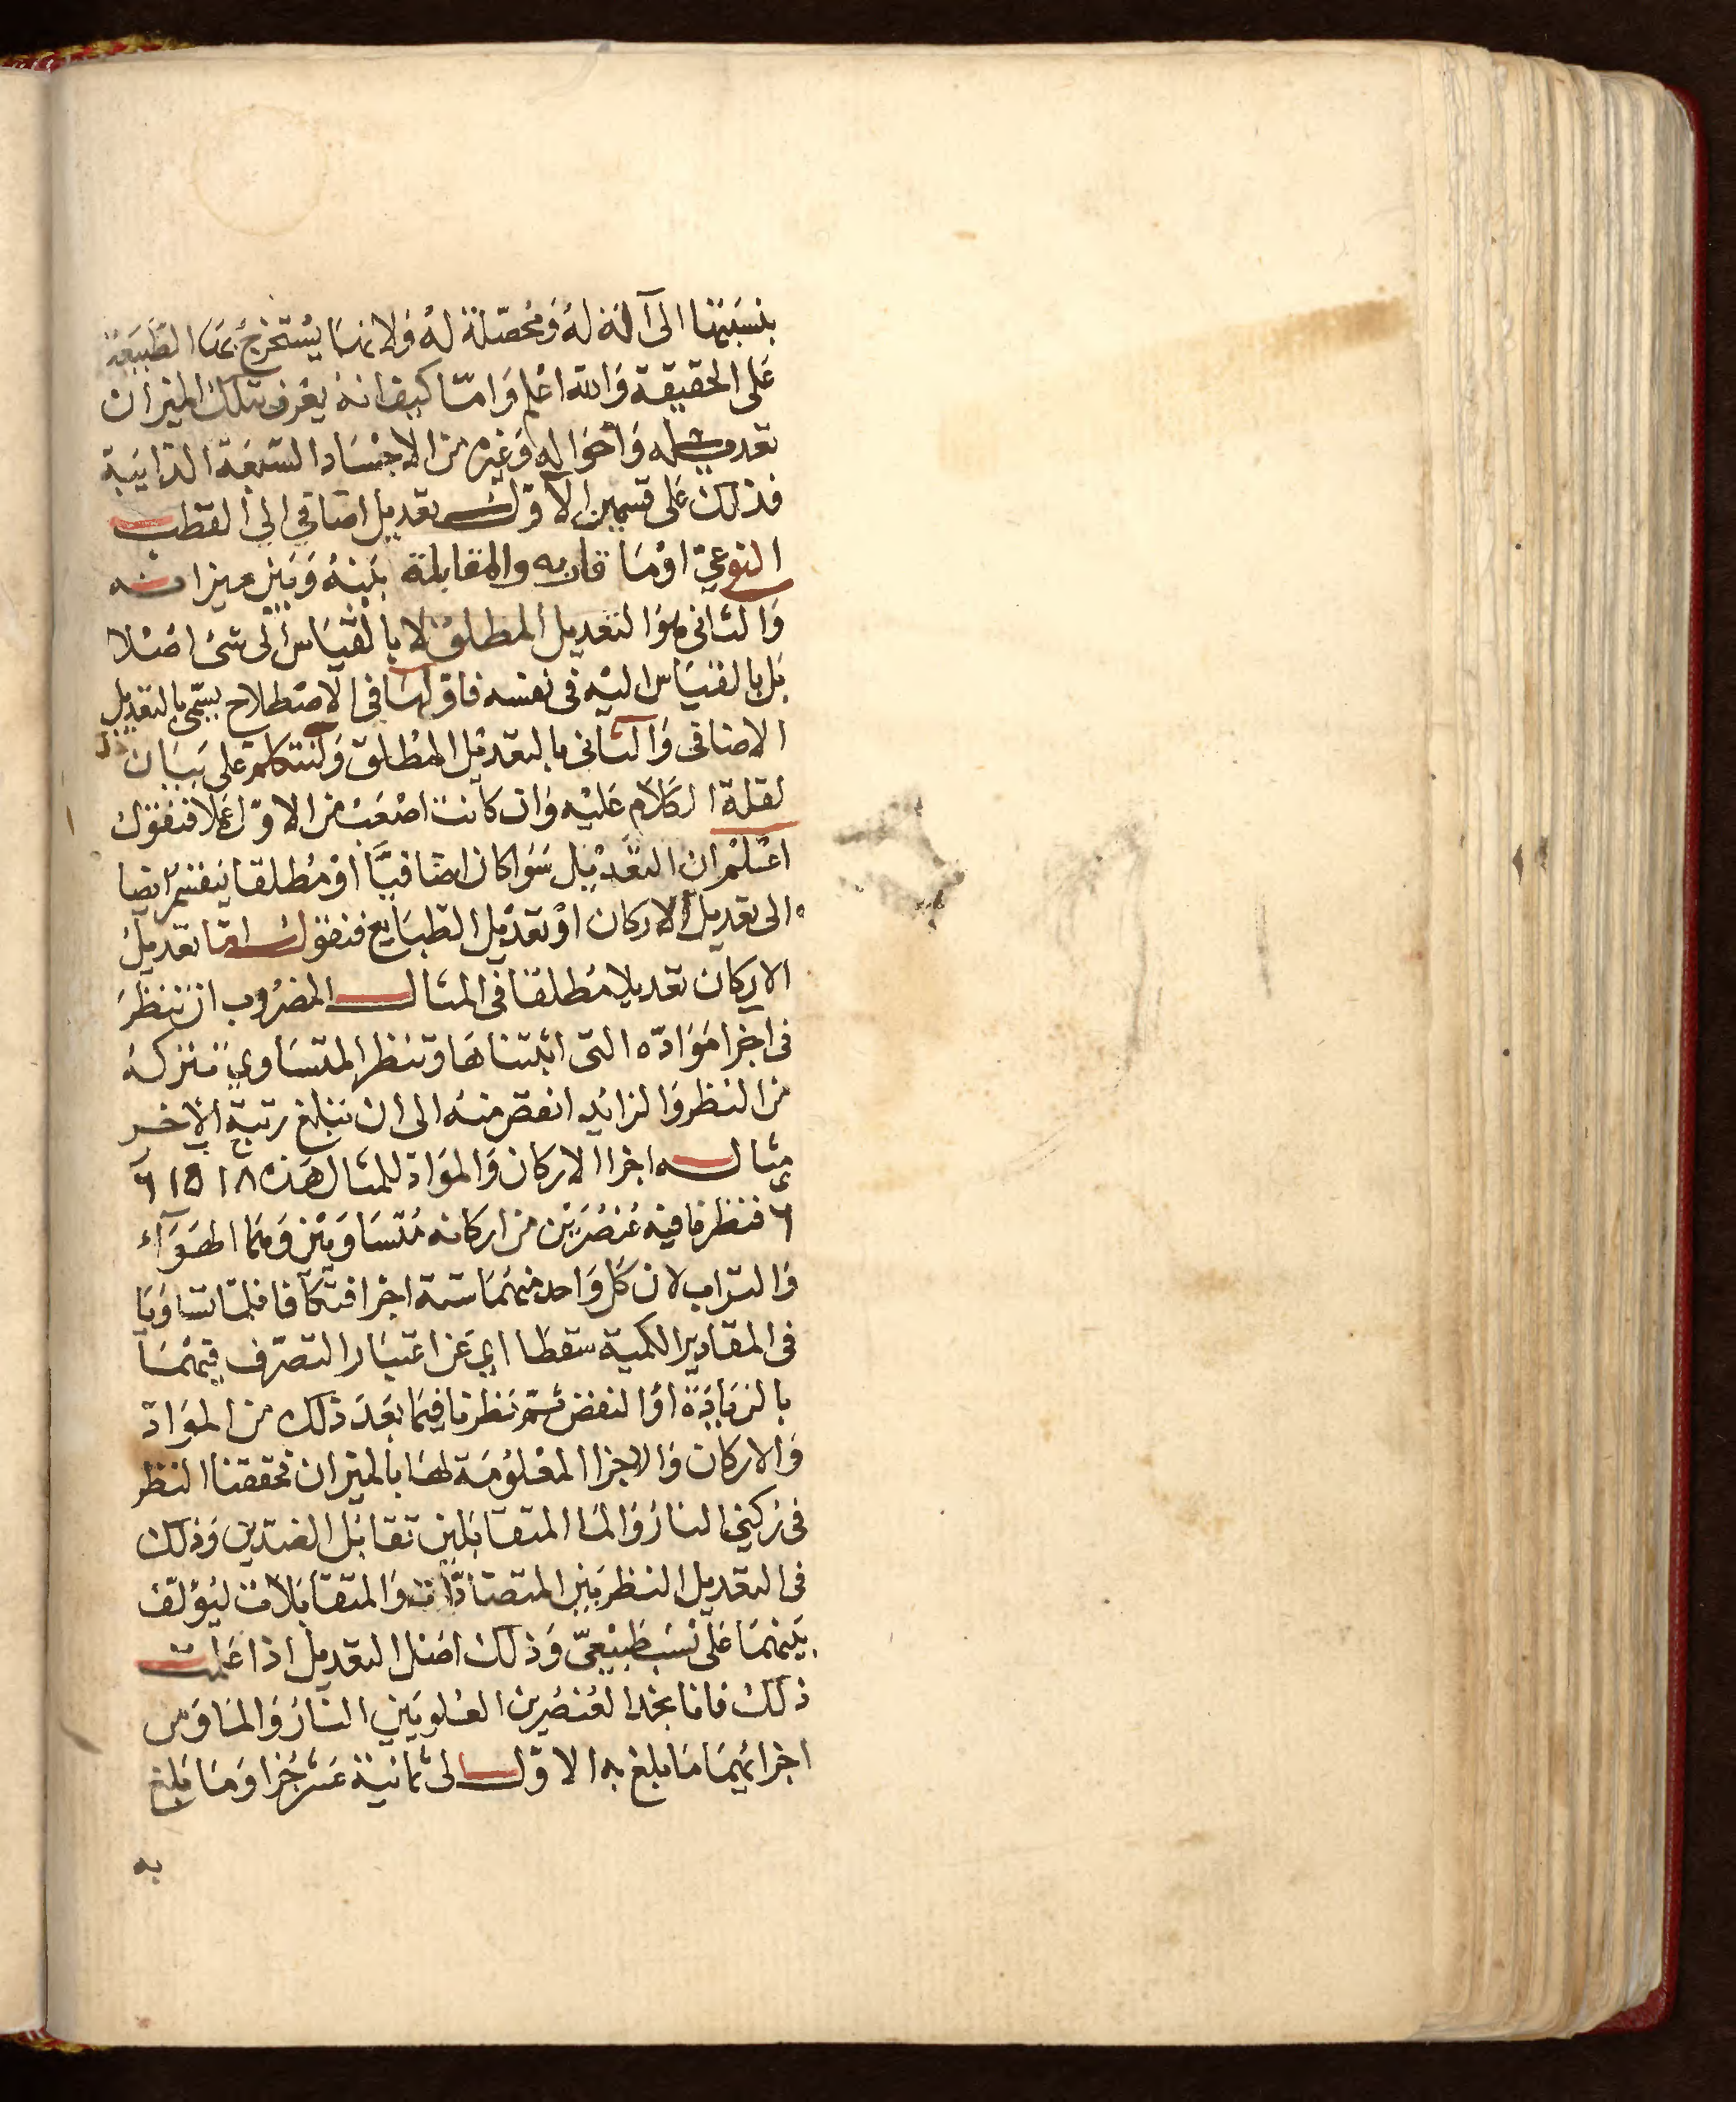 بنسبتها الى آلة له ومحصلة له ولانها يستخرج بها الطبيعة
على الحقيقة والله اعلم واما كيف انه يعرف بتلك الميزان
تعديله واحواله وغيره من الاجساد السبعة الذايبة
فذلك على قسمين الاول تعديل اضافي الى القطب
النوعي او ما قاربه والمقابلة بينه وبين ميزانه
والثاني هو التعديل المطلق لا بالقياس الى شئ اصلا
بل بالقياس اليه في نفسه فاولها في الاصطلاح يسمى بالتعديل
الاضافي والثاني بالتعديل المطلق ولنتكلم على بيان
لقلة الكلام عليه وان كانت اصعب من الاول عملا فنقول
اعلم ان التعديل سوا كان اضافيا او مطلقا ينقسم ايضا
الى تعديل الاركان او تعديل الطبايع فنقول اما تعديل
الاركان تعديلا مطلقا في المثال المضروب ان ننظر
في اجزا مواده التي اثبتناها وتنظر المتساوي تتركه
من النظر والزايد انقص منه الى ان تبلغ رتبة الاخر
مثاله اجزا الاركان والمواد للمثال هذه ١٨ ١٥ ٦
٦ فنظرنا فيه عنصرين من اركانه متساويين وهما الهوآء
والتراب لان كل واحد منهما ستة اجزا فتكآفا فلما تساويا
في المقادير الكمية سقطا اي عن اعتبار التصرف فيهما
بالزيادة او النقص ثم نظرنا فيما بعد ذلك من المواد
والاركان والاجزا المعلومة لها بالميزان فحققنا النظر
في ركني النار والما المتقابلين تقابل الضدين وذلك
في التعديل النظر بين المتضادات والمتقابلات ليؤلف
بينهما على نسب طبيعي وذلك اصل التعديل اذا علمت
ذلك فانا نجد العنصرين العلويين النار والما ومن
اجزائهما ما بلغ به الاول الى ثمانية عشر جزا وما بلغ
به